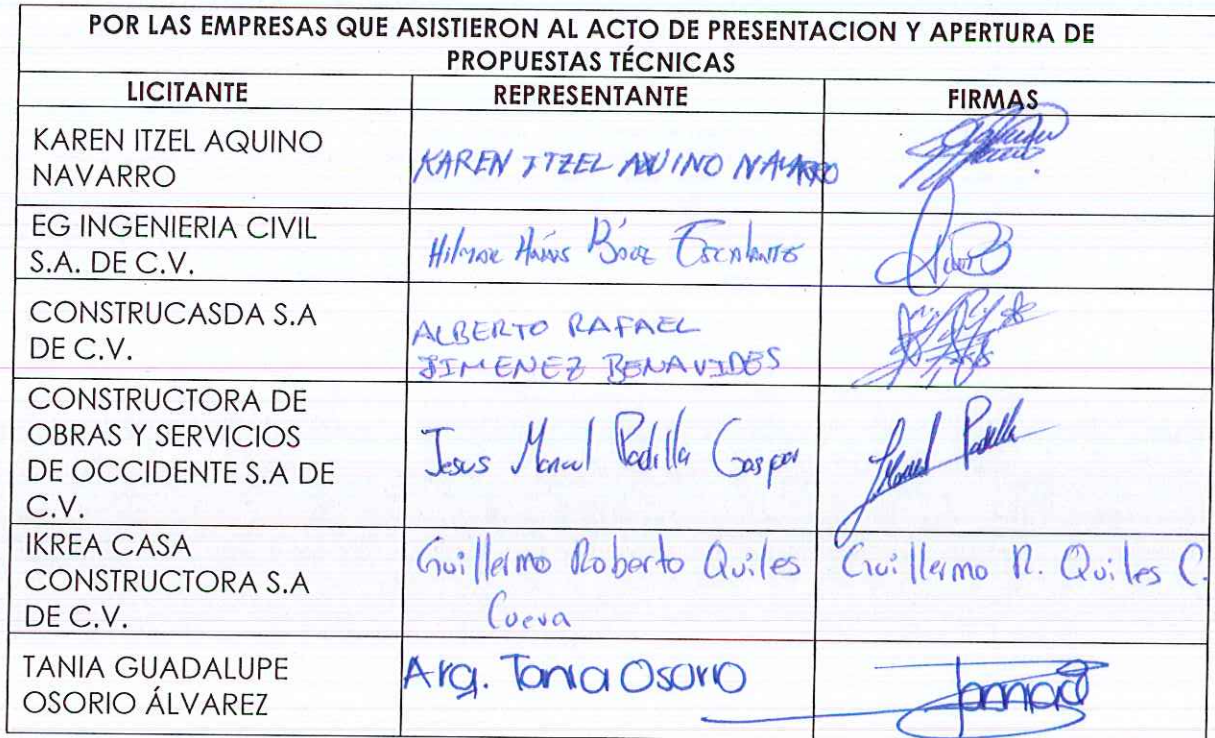 POR LAS EMPRESAS QUE ASISTIERON AL ACTO DE PRESENTACION Y APERTURA DE
PROPUESTAS TÉCNICAS
LICITANTE REPRESENTANTE FIRMAS
KAREN ITZEL AQUINO
NAVARRO
KAREN ITZEL AQUINO NAVARRO
EG INGENIERIA CIVIL
S.A. DE C.V.
Escalante
CONSTRUCASDA S.A
DE C.V.
ALBERTO RAFAEL
JIMENEZ BENAVIDES
CONSTRUCTORA DE
OBRAS Y SERVICIOS
DE OCCIDENTE S.A DE
C.V.
Jesus Manuel Padilla Gaspar
Manuel Padilla
IKREA CASA
CONSTRUCTORA S.A
DE C.V.
Guillermo Roberto Quiles
Cueva
Guillermo R. Quiles C.
TANIA GUADALUPE
OSORIO ÁLVAREZ
Arq. Tania Osorio